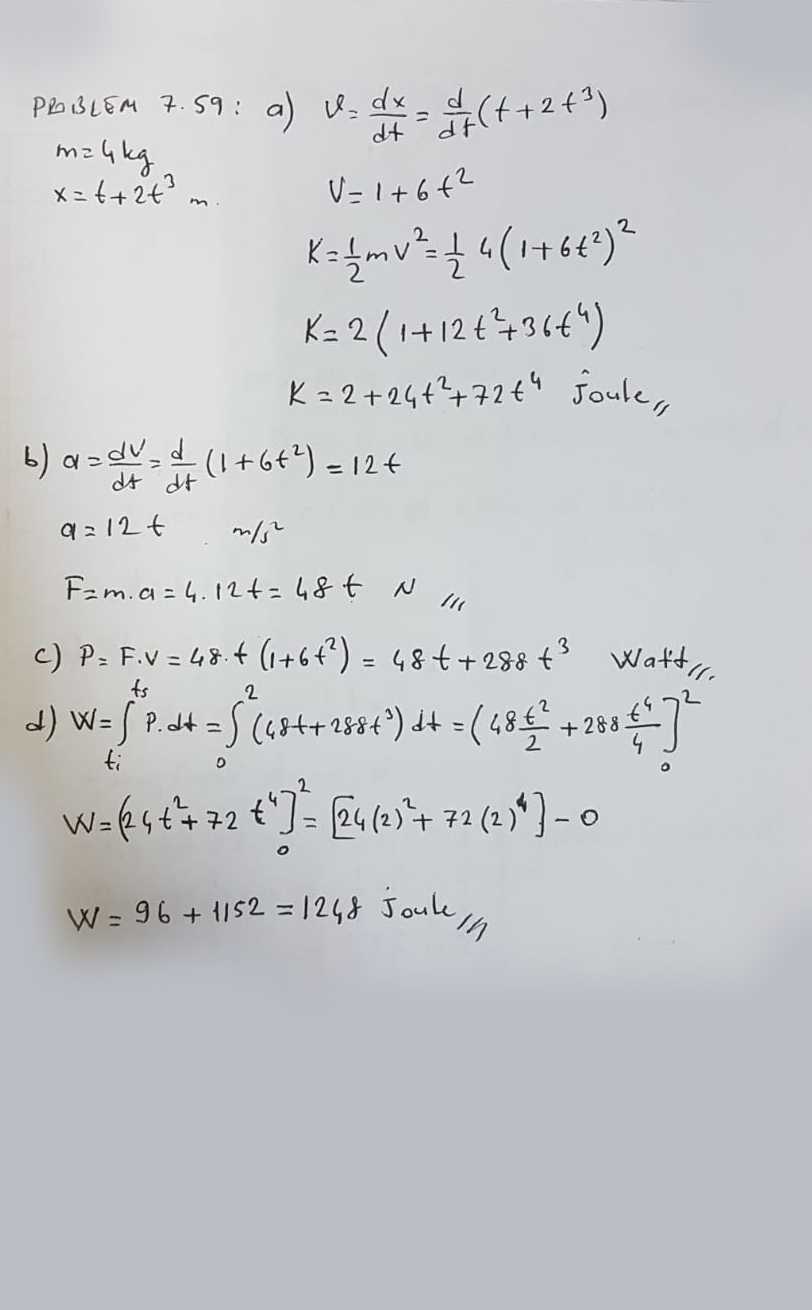 PROBLEM 7.59: a) v = dx/dt = d/dt (t+2t³)
m=4kg
x=t+2t³ m.
V=1+6t²
K=1/2 mv²=1/2 4(1+6t²)²
K=2(1+12t²+36t⁴)
K=2+24t²+72t⁴ Joule//
b) a=dV/dt=d/dt (1+6t²)=12t
a=12t m/s²
F=m.a=4.12t=48t N ///
c) P=F.V=48.t(1+6t²)=48t+288t³ Watt//.
d) W=∫ti ts P.dt=∫0 2 (48t+288t³)dt=(48 t²/2 +288 t⁴/4]0 2
W=(24t²+72t⁴]0 2=[24(2)²+72(2)⁴]-0
W=96+1152=1248 Joule///